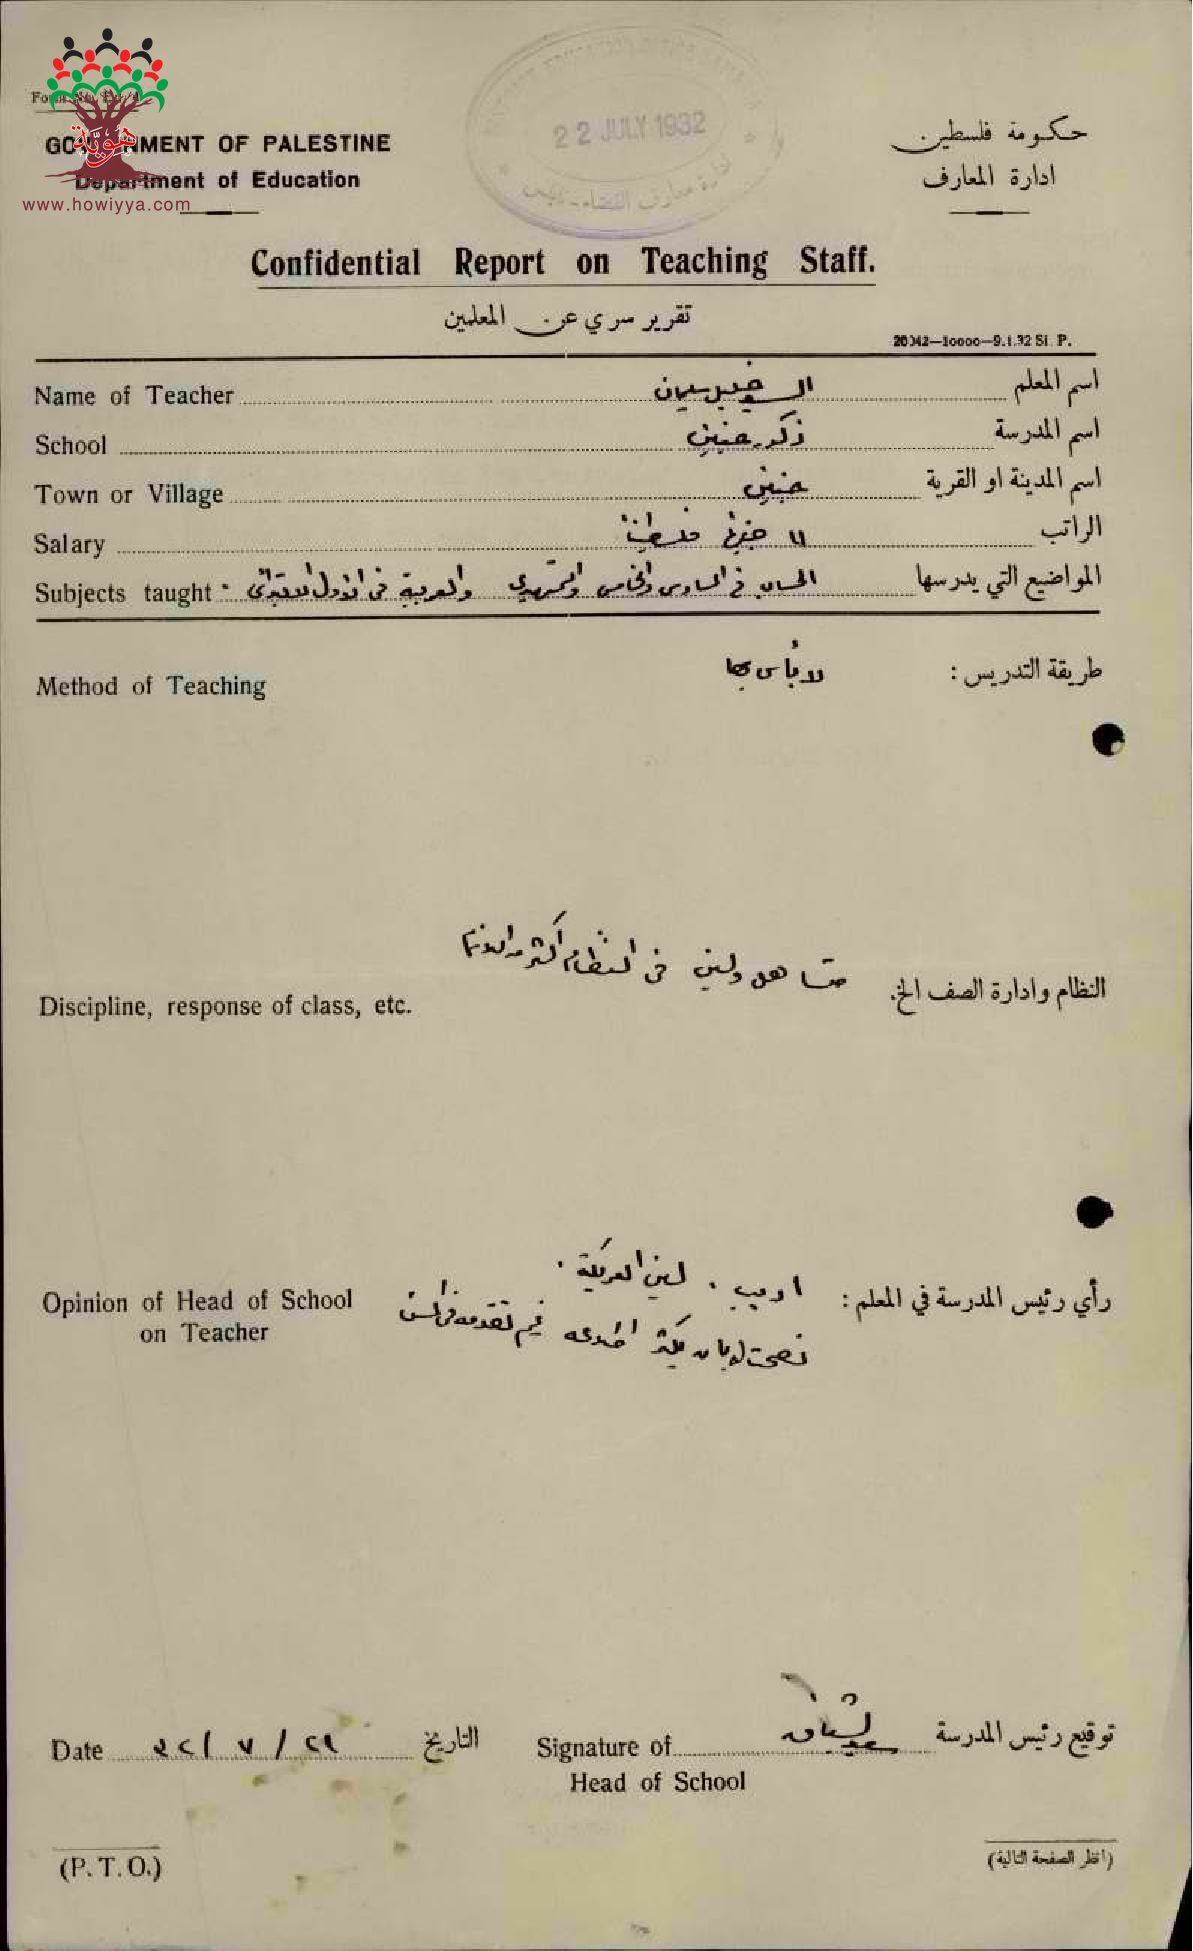 Form No.
هوية
www.howiyya.com
GOVERNMENT OF PALESTINE
Department of Education
22 JULY 1932
ادارة معارف القضاء
حكومة فلسطين
ادارة المعارف
Confidential Report on Teaching Staff.
تقرير سري عن المعلمين
20042—10000—9.1.32 Sl. P.
Name of Teacher السيد خليل سليمان اسم المعلم
School ذكور جنين اسم المدرسة
Town or Village جنين اسم المدينة او القرية
Salary ١١ فلسطينيا الراتب
Subjects taught الحساب في السادس والخامس والتمهيدي والعربية في الاول الابتدائي المواضيع التي يدرسها
Method of Teaching لا بأس بها طريقة التدريس :
Discipline, response of class, etc. متساهل ولين في النظام أكثر من النظام وادارة الصف الخ.
Opinion of Head of School on Teacher اديب . لين العريكة . رأي رئيس المدرسة في المعلم :
نصحت له بان يكثر
Date ٢١ / ٧ / ٣٢ التاريخ Signature of Head of School توقيع رئيس المدرسة
(P. T. O.) (انظر الصفحة التالية)